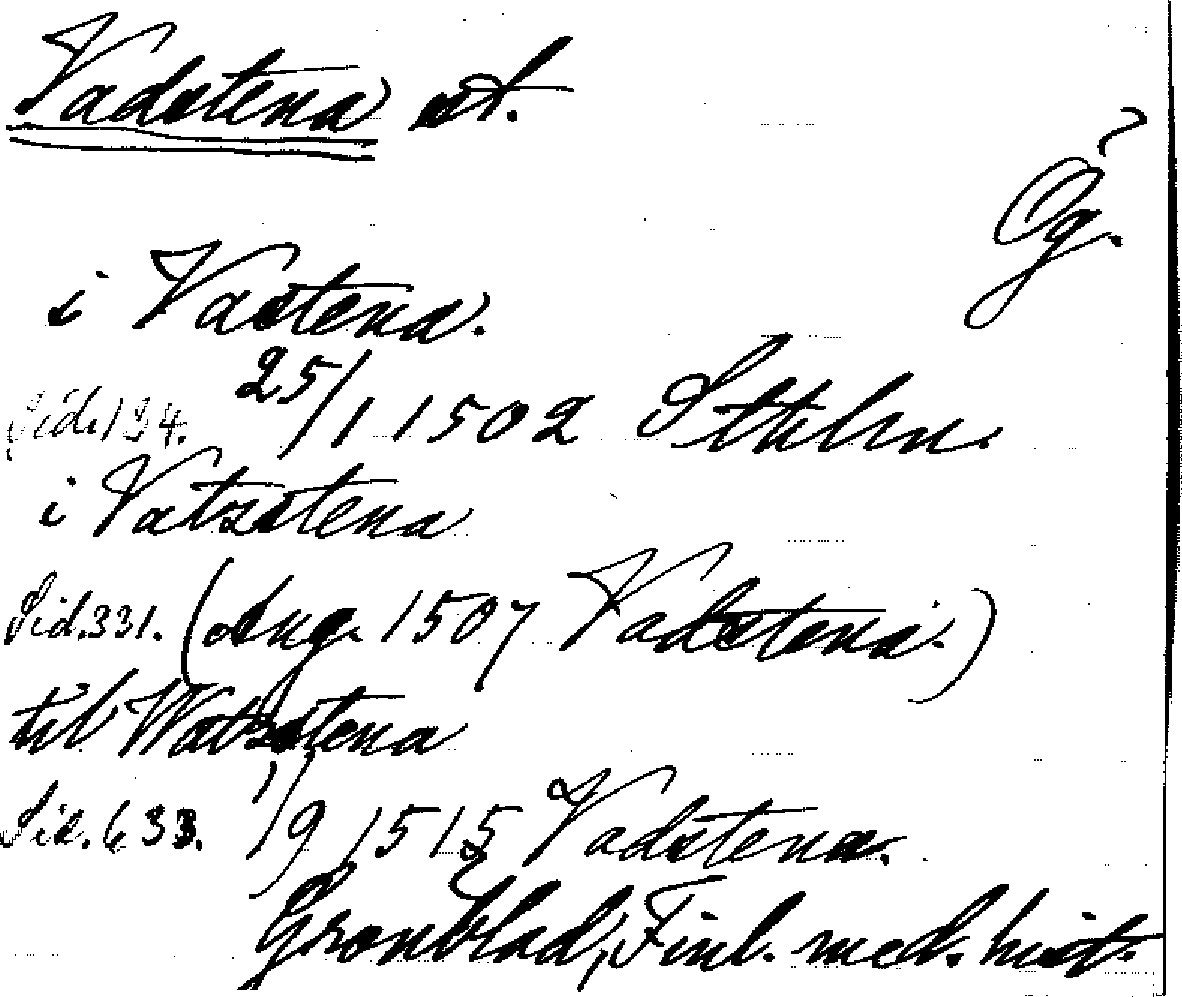 Vadstena st.
Ög.
i Vastena.
Sid. 134. 25/1 1502 Sthlm.
i Vatzstena
Sid. 331. (Aug. 1507 Vadstena.)
til Watzstena
Sid. 633. 1/9 1515 Vadstena.
Grönblad, Finl. med. hist.